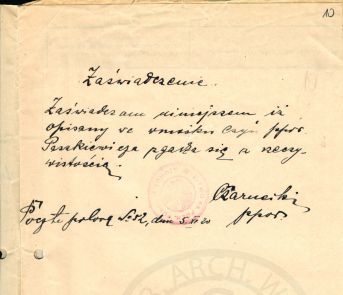 10
Zaświadczenie.
Zaświadczam niniejszem iż
opisany we wniosku czyn ppor.
Paszkiewicza zgadza się z rzeczy-
wistością.
Czarnecki
ppor.
Poczta polowa No 52, dnia 5.VI 20
ARCH. W